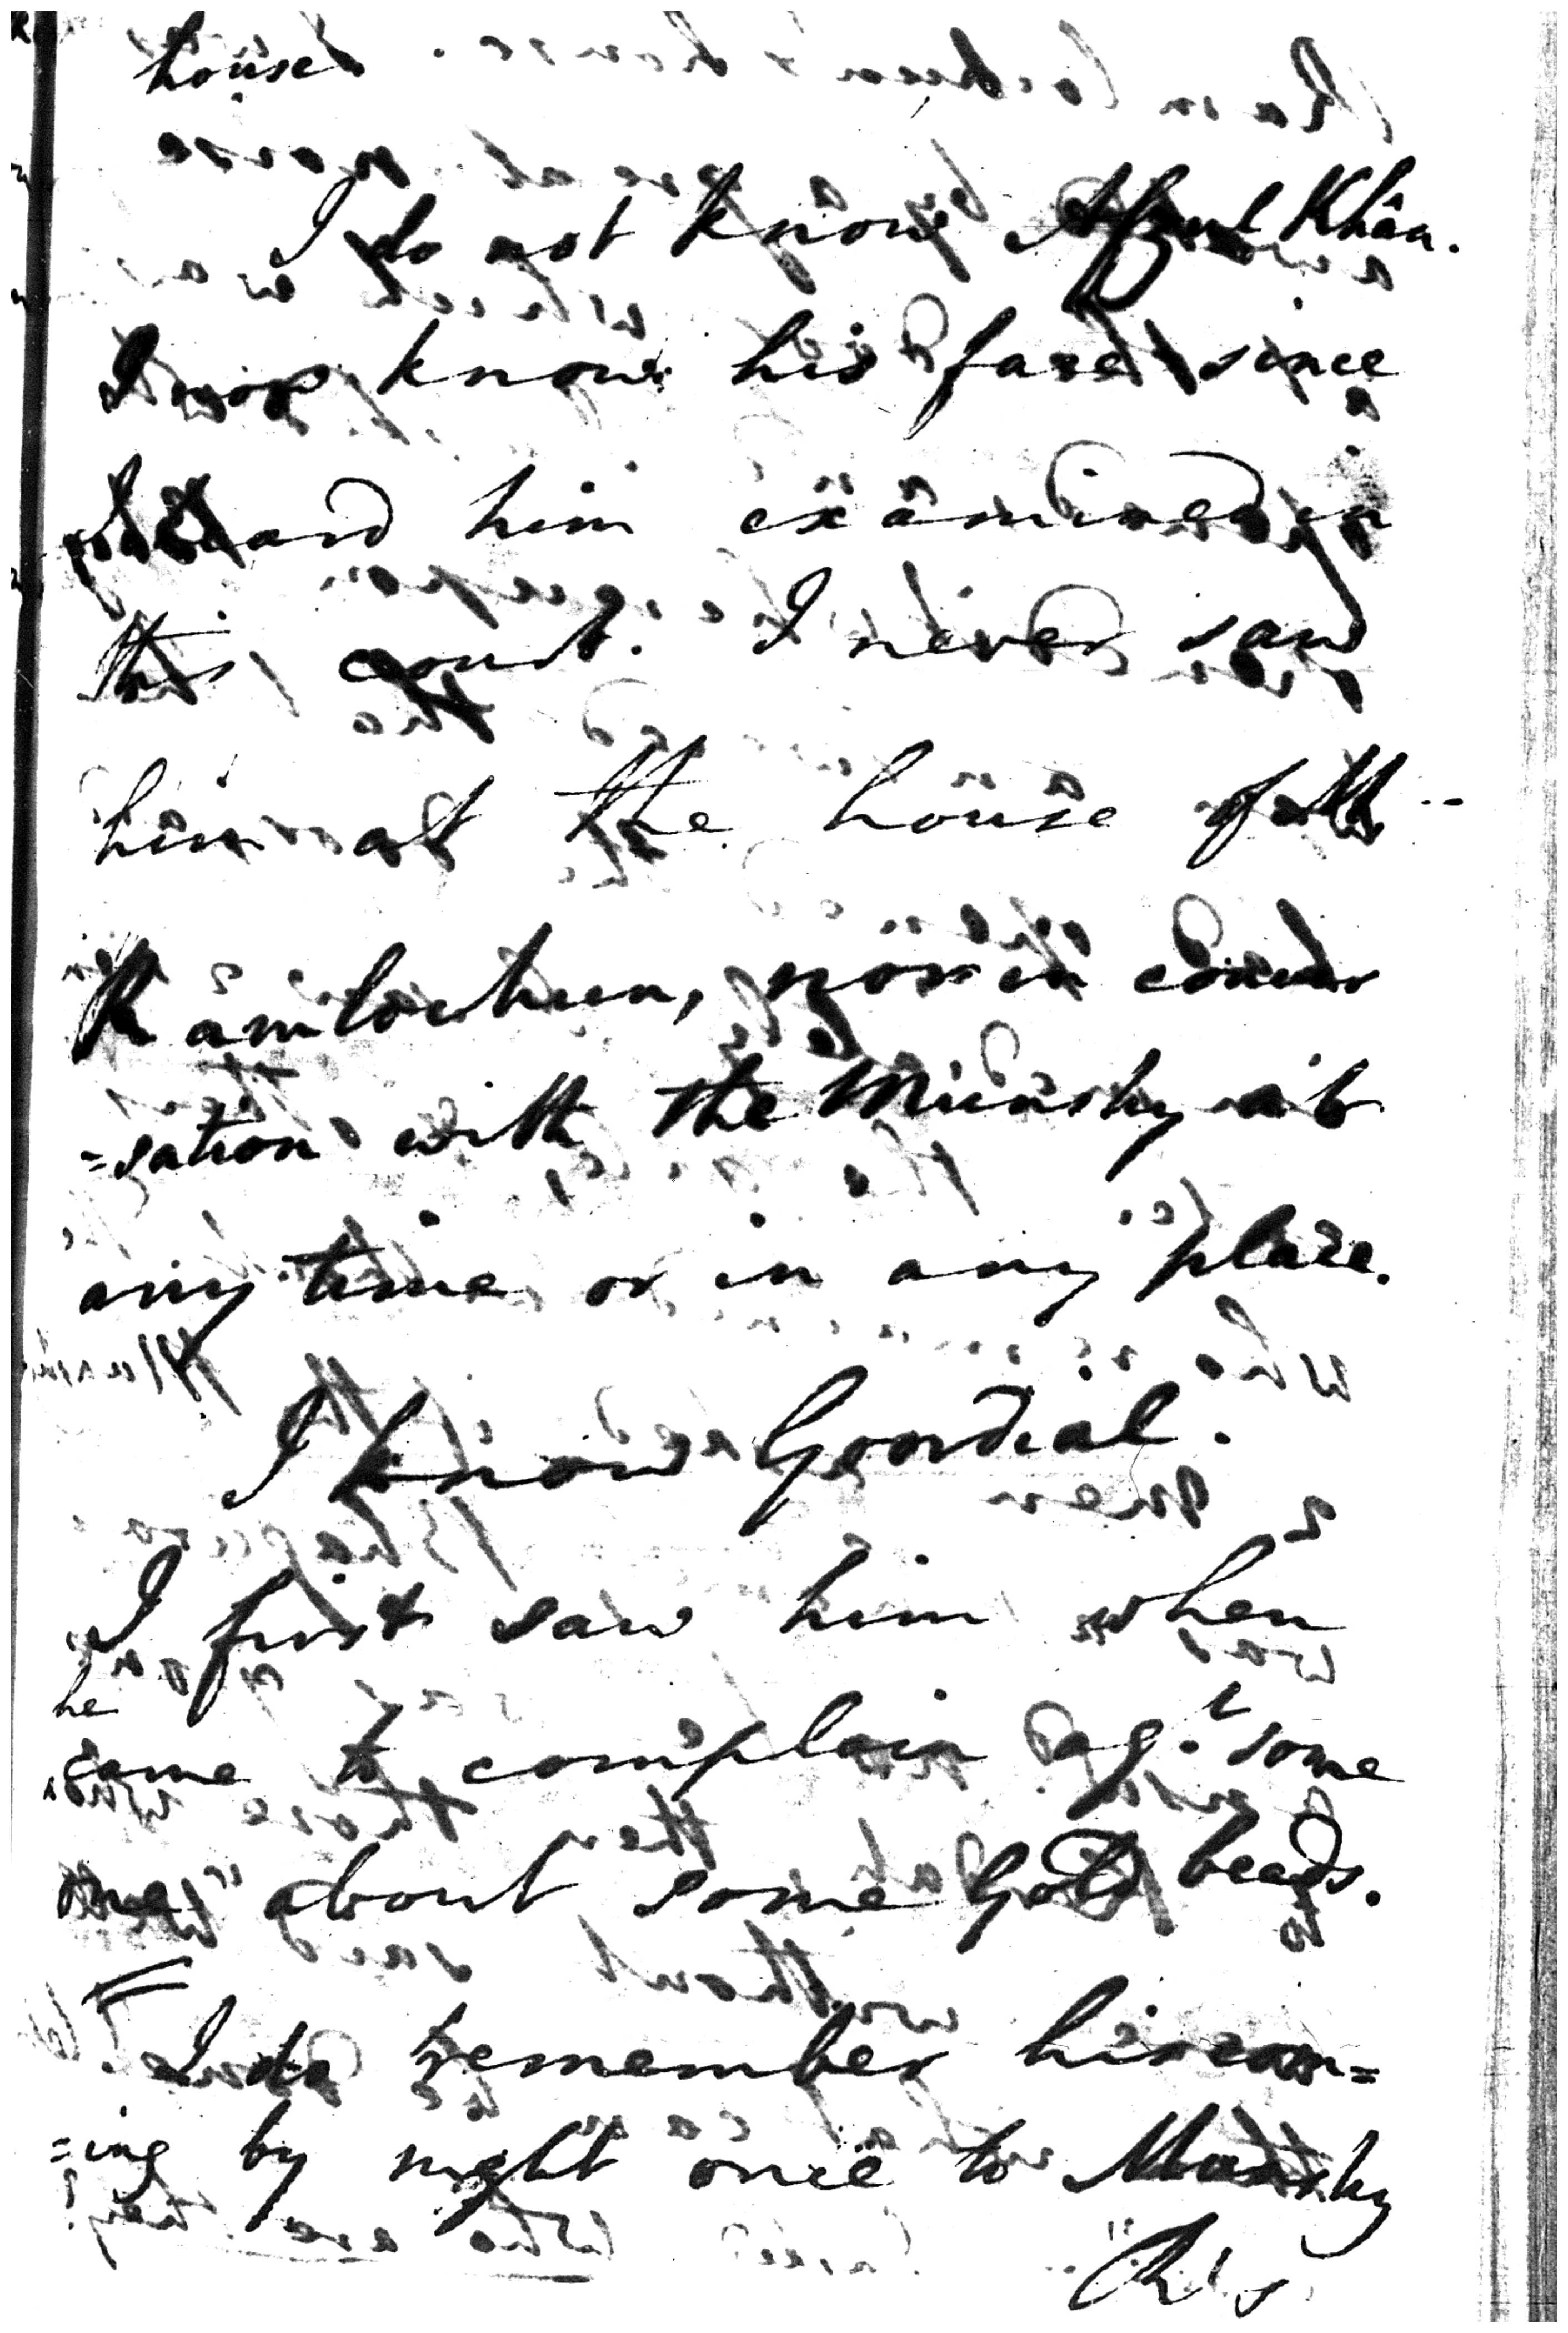 house
I do not know Afzul Khân.
I now know his face since
I heard him examined in
this court. I never saw
him at the house of M
Râmlochun, nor in conver
=sation with the Munshy at
any time or in any place.
I know Goordial.
I first saw him when
he
came to complain agt some
one about some Gold beads.
I do remember his com=
=ing by night once to Munshy
R's